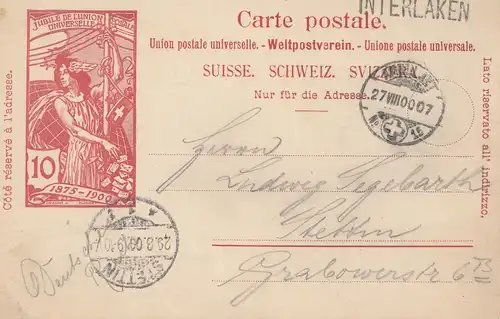 INTERLAKEN
Carte postale.
Union postale universelle. - Weltpostverein. - Unione postale universale.
SUISSE. SCHWEIZ. SVIZZERA.
Nur für die Adresse.
Côté réservé à l'adresse.
Lato riservato all' indirizzo.
JUBILÉ DE L'UNION POSTALE
UNIVERSELLE
10
1875-1900
27 VIII 00 07
STETTIN
29.8.00
Herrn
Ludwig Segebarth
Stettin
Grabowerstr 6 B